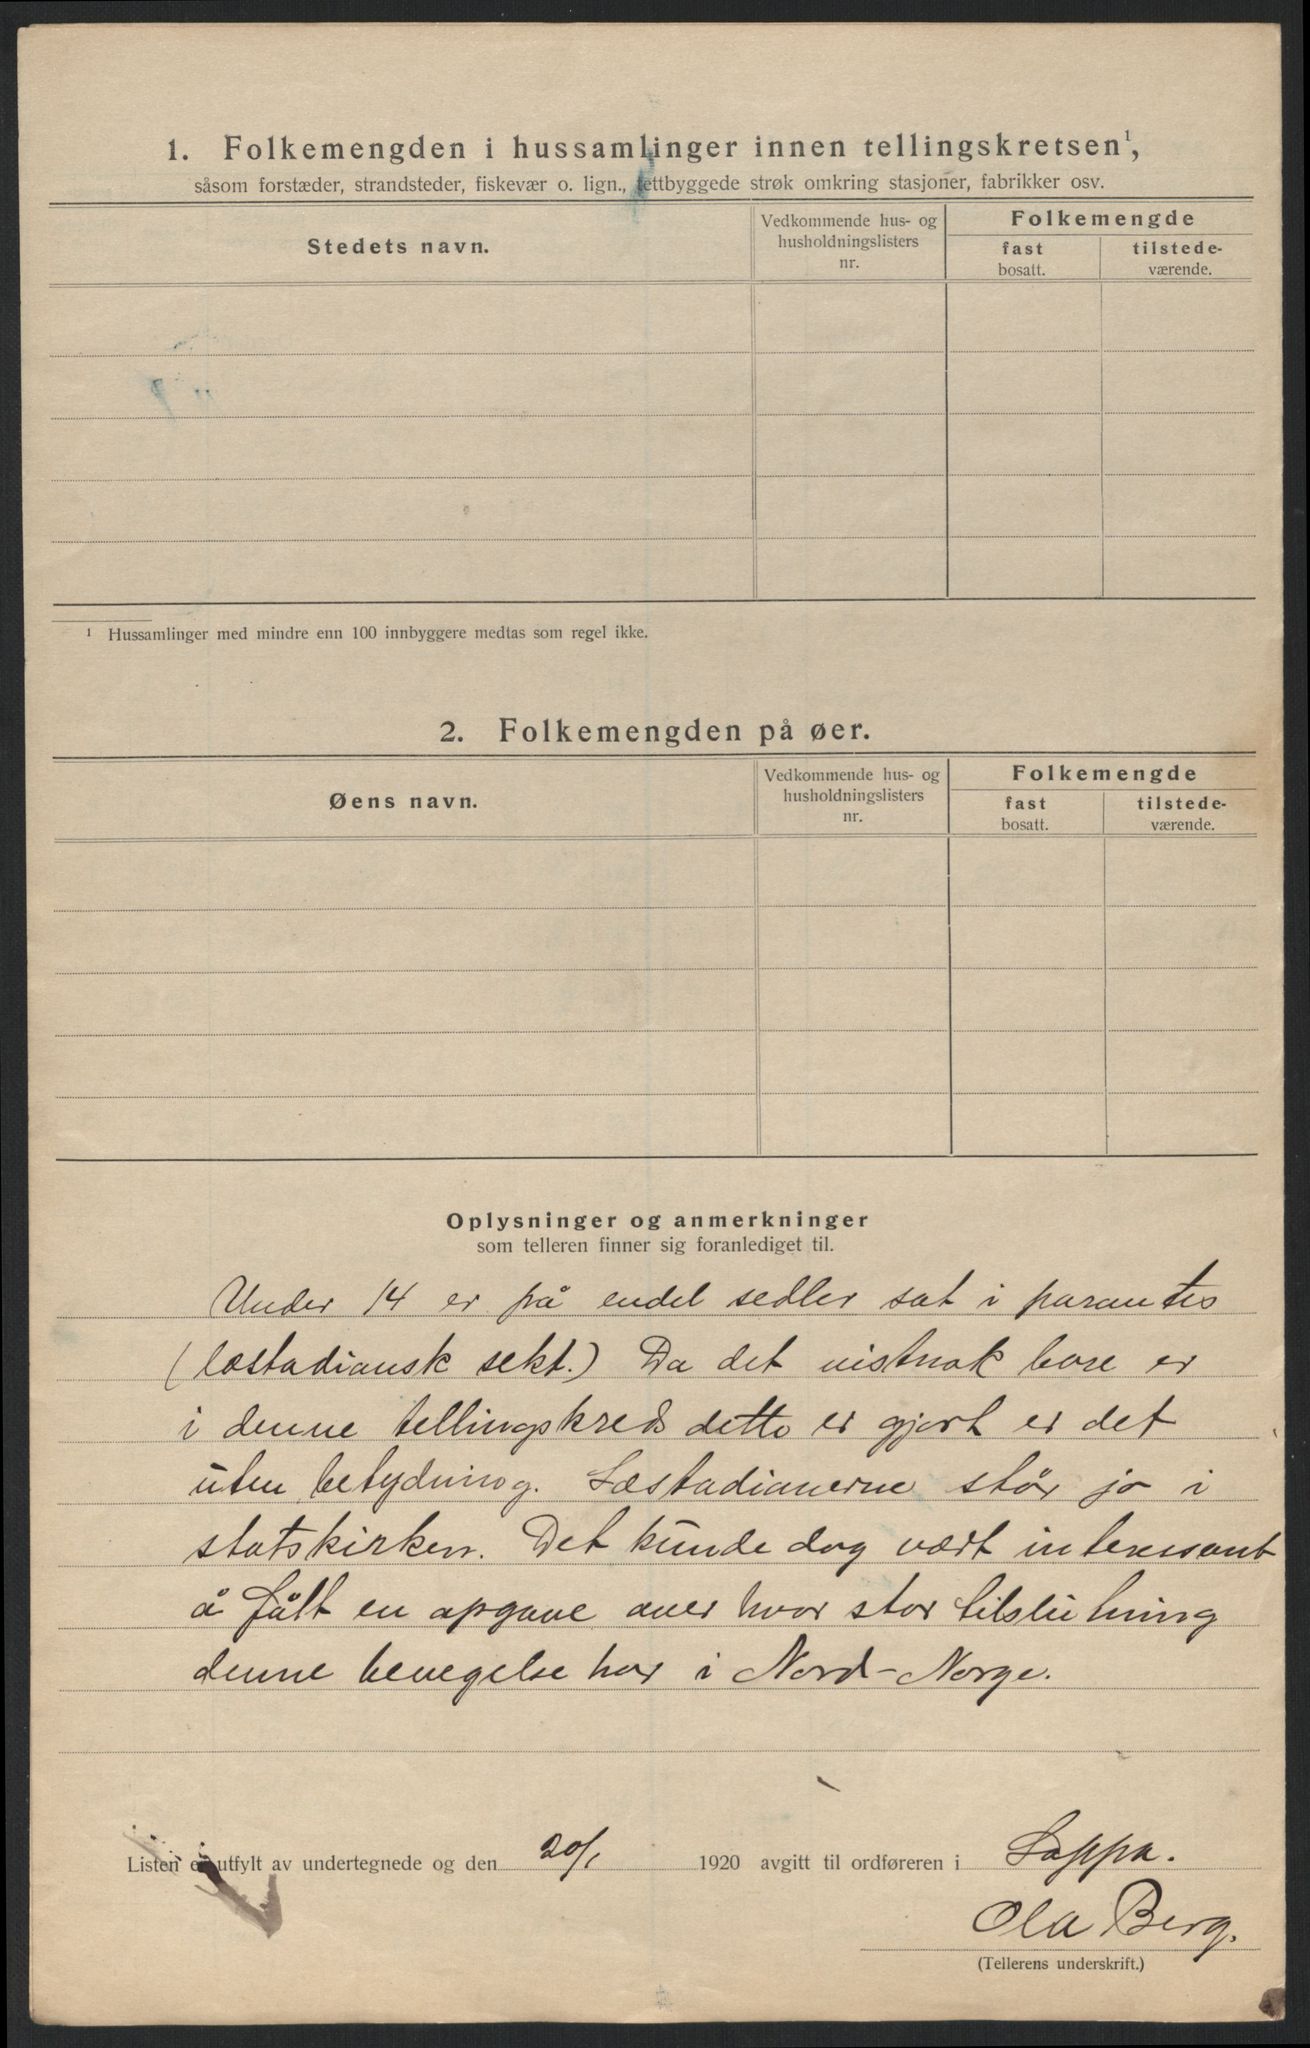 1. Folkemengden i hussamlinger innen tellingskretsen¹,
såsom forstæder, strandsteder, fiskevær o. lign., tettbyggede strøk omkring stasjoner, fabrikker osv.
Stedets navn.
Vedkommende hus- og
husholdningslisters
nr.
Folkemengde
fast
bosatt.
tilstede-
værende.
¹ Hussamlinger med mindre enn 100 innbyggere medtas som regel ikke.
2. Folkemengden på øer.
Øens navn.
Vedkommende hus- og
husholdningslisters
nr.
Folkemengde
fast
bosatt.
tilstede-
værende.
Oplysninger og anmerkninger
som telleren finner sig foranlediget til.
Under 14 er på endel sedler sat i parantes
(læstadiansk sekt.) Da det vistnok bare er
i denne tellingskreds dette er gjort er det
uten betydning. Læstadianerne står jo i
statskirken. Det kunde dog vært interessant
å fått en opgave over hvor stor tilslutning
denne bevegelse har i Nord-Norge.
Listen er utfylt av undertegnede og den 20/1 1920 avgitt til ordføreren i Loppa.
Ola Berg.
(Tellerens underskrift.)